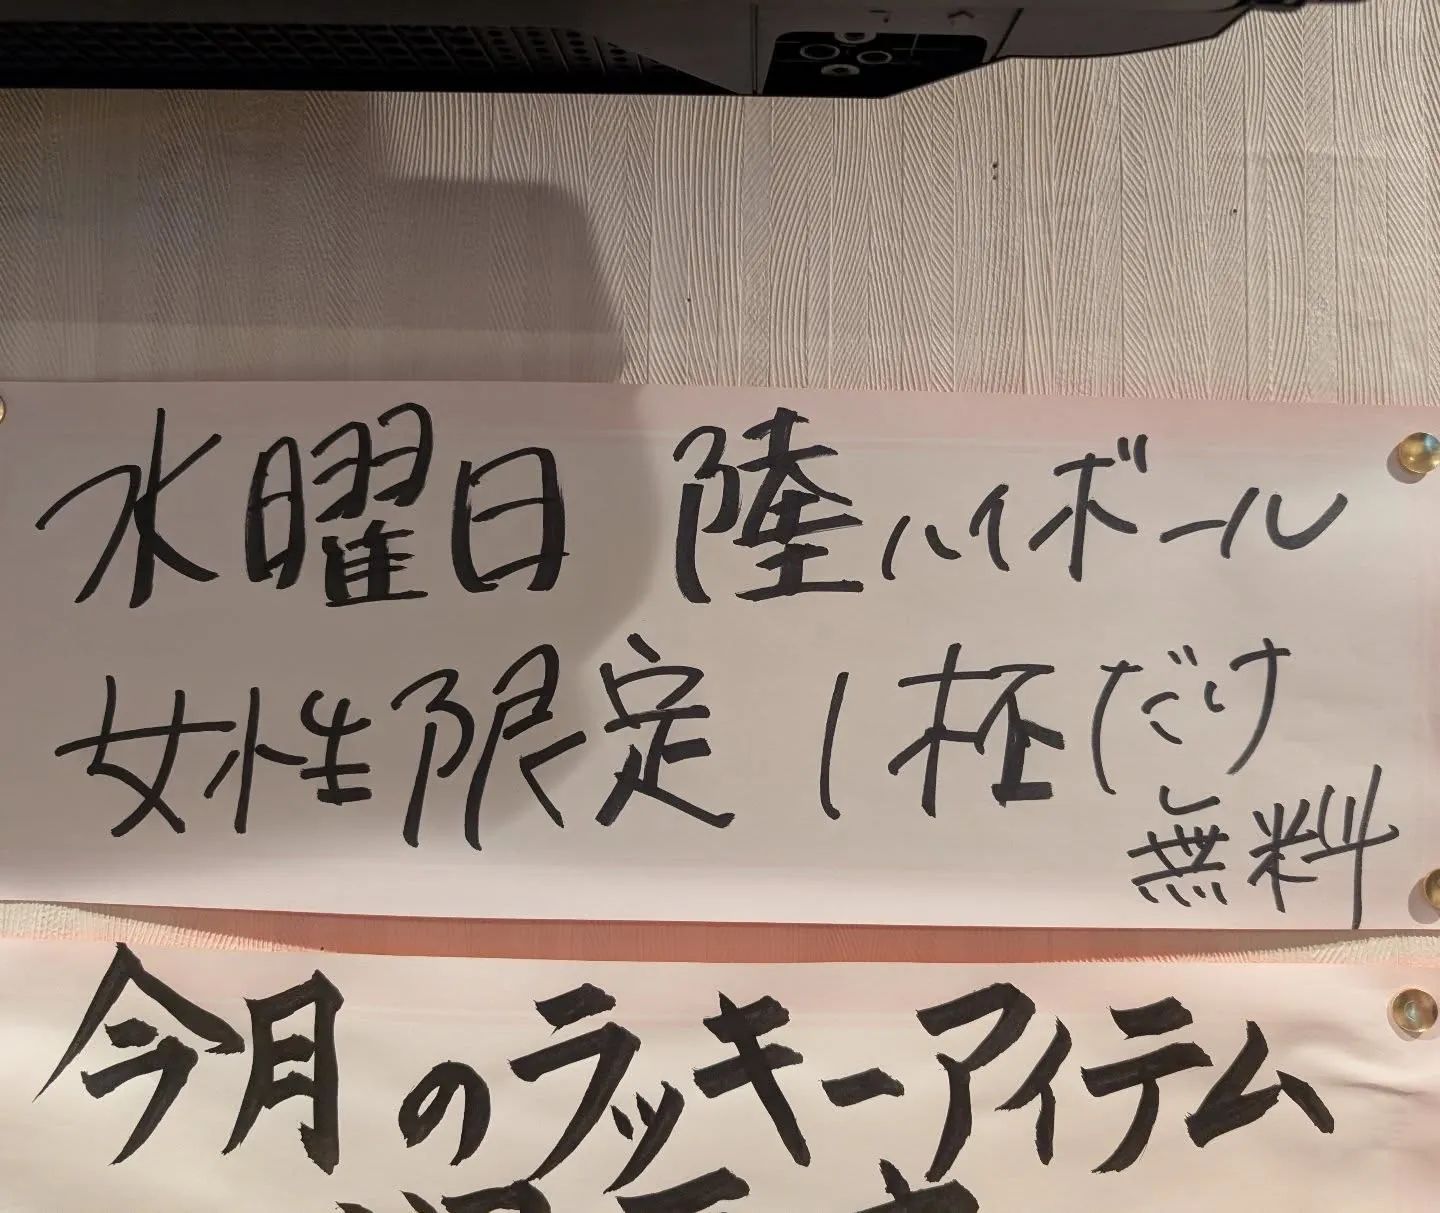 水曜日 陸ハイボール
女性限定 1杯だけ
無料
今月のラッキーアイテム